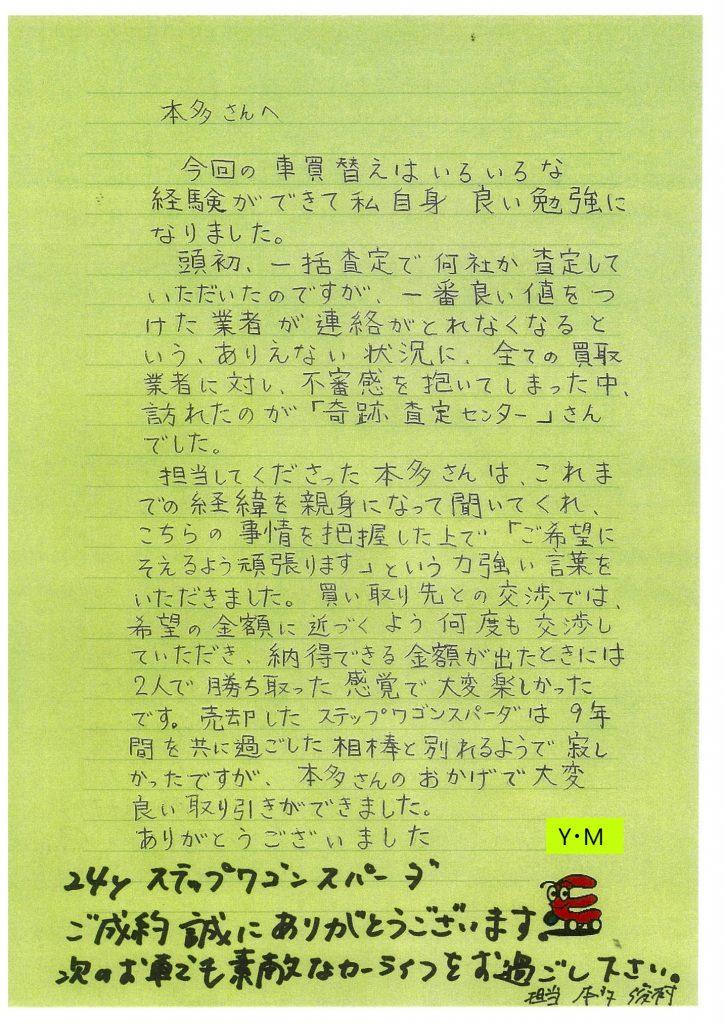 本多さんへ
今回の車買替えはいろいろな
経験ができて私自身 良い勉強に
なりました。
頭初、一括査定で何社か査定して
いただいたのですが、一番良い値をつ
けた業者が連絡がとれなくなると
いう、ありえない状況に、全ての買取
業者に対し、不審感を抱いてしまった中、
訪れたのが「奇跡査定センター」さん
でした。
担当してくださった本多さんは、これま
での経緯を親身になって聞いてくれ、
こちらの事情を把握した上で「ご希望に
そえるよう頑張ります」という力強い言葉を
いただきました。買い取り先との交渉では、
希望の金額に近づくよう何度も交渉し
ていただき、納得できる金額が出たときには
2人で勝ち取った感覚で大変楽しかった
です。売却したステップワゴンスパーダは9年
間を共に過ごした相棒と別れるようで寂し
かったですが、本多さんのおかげで大変
良い取り引きができました。
ありがとうございました
Y・M
24y ステップワゴンスパーダ
ご成約誠にありがとうございます。
次のお車でも素敵なカーライフをお過ごし下さい。
担当 本多